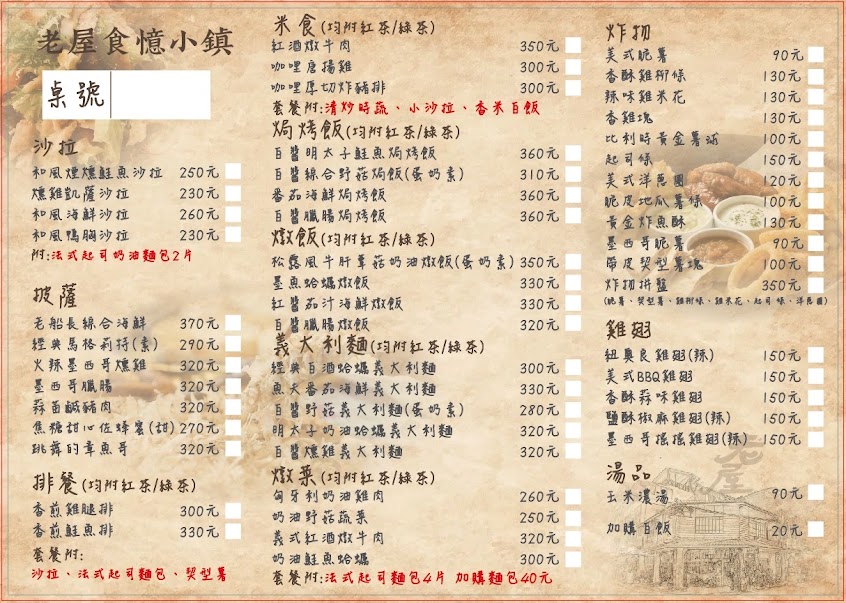 老屋食憶小鎮
桌號
沙拉
和風煙燻鮭魚沙拉 250元
燻雞凱薩沙拉 230元
和風海鮮沙拉 260元
和風鴨胸沙拉 230元
附:法式起司奶油麵包2片
披薩
老船長綜合海鮮 370元
經典馬格莉特(素) 290元
火辣墨西哥燻雞 320元
墨西哥臘腸 320元
蒜苗鹹豬肉 320元
焦糖甜心佐蜂蜜(甜) 270元
跳舞的章魚哥 320元
排餐(均附紅茶/綠茶)
香煎雞腿排 300元
香煎鮭魚排 330元
套餐附:
沙拉、法式起司麵包、契型薯
米食(均附紅茶/綠茶)
紅酒燉牛肉 350元
咖哩唐揚雞 300元
咖哩厚切炸豬排 300元
套餐附:清炒時蔬、小沙拉、香米白飯
焗烤飯(均附紅茶/綠茶)
白醬明太子鮭魚焗烤飯 360元
白醬綜合野菇焗飯(蛋奶素) 310元
番茄海鮮焗烤飯 360元
白醬臘腸焗烤飯 360元
燉飯(均附紅茶/綠茶)
松露風牛肝蕈菇奶油燉飯(蛋奶素) 350元
墨魚蛤蠣燉飯 330元
紅醬茄汁海鮮燉飯 330元
白醬臘腸燉飯 320元
義大利麵(均附紅茶/綠茶)
經典白酒蛤蠣義大利麵 300元
魚夫番茄海鮮義大利麵 330元
白醬野菇義大利麵(蛋奶素) 280元
明太子奶油蛤蠣義大利麵 320元
白醬燻雞義大利麵 320元
燉菜(均附紅茶/綠茶)
匈牙利奶油雞肉 260元
奶油野菇蔬菜 250元
美式紅酒燉牛肉 320元
奶油鮭魚蛤蠣 300元
套餐附:法式起司麵包4片 加購麵包40元
炸物
美式脆薯 90元
香酥雞柳條 130元
辣味雞米花 130元
香雞塊 130元
比利時黃金薯球 100元
起司條 150元
美式洋蔥圈 120元
脆皮地瓜薯條 100元
黃金炸魚酥 130元
墨西哥脆薯 90元
帶皮契型薯塊 100元
炸物拼盤 350元
(脆薯、契型薯、雞柳條、雞米花、起司條、洋蔥圈)
雞翅
紐奧良雞翅(辣) 150元
美式BBQ雞翅 150元
香酥蒜味雞翅 150元
鹽酥椒麻雞翅(辣) 150元
墨西哥搖搖雞翅(辣) 150元
湯品
玉米濃湯 90元
加購白飯 20元